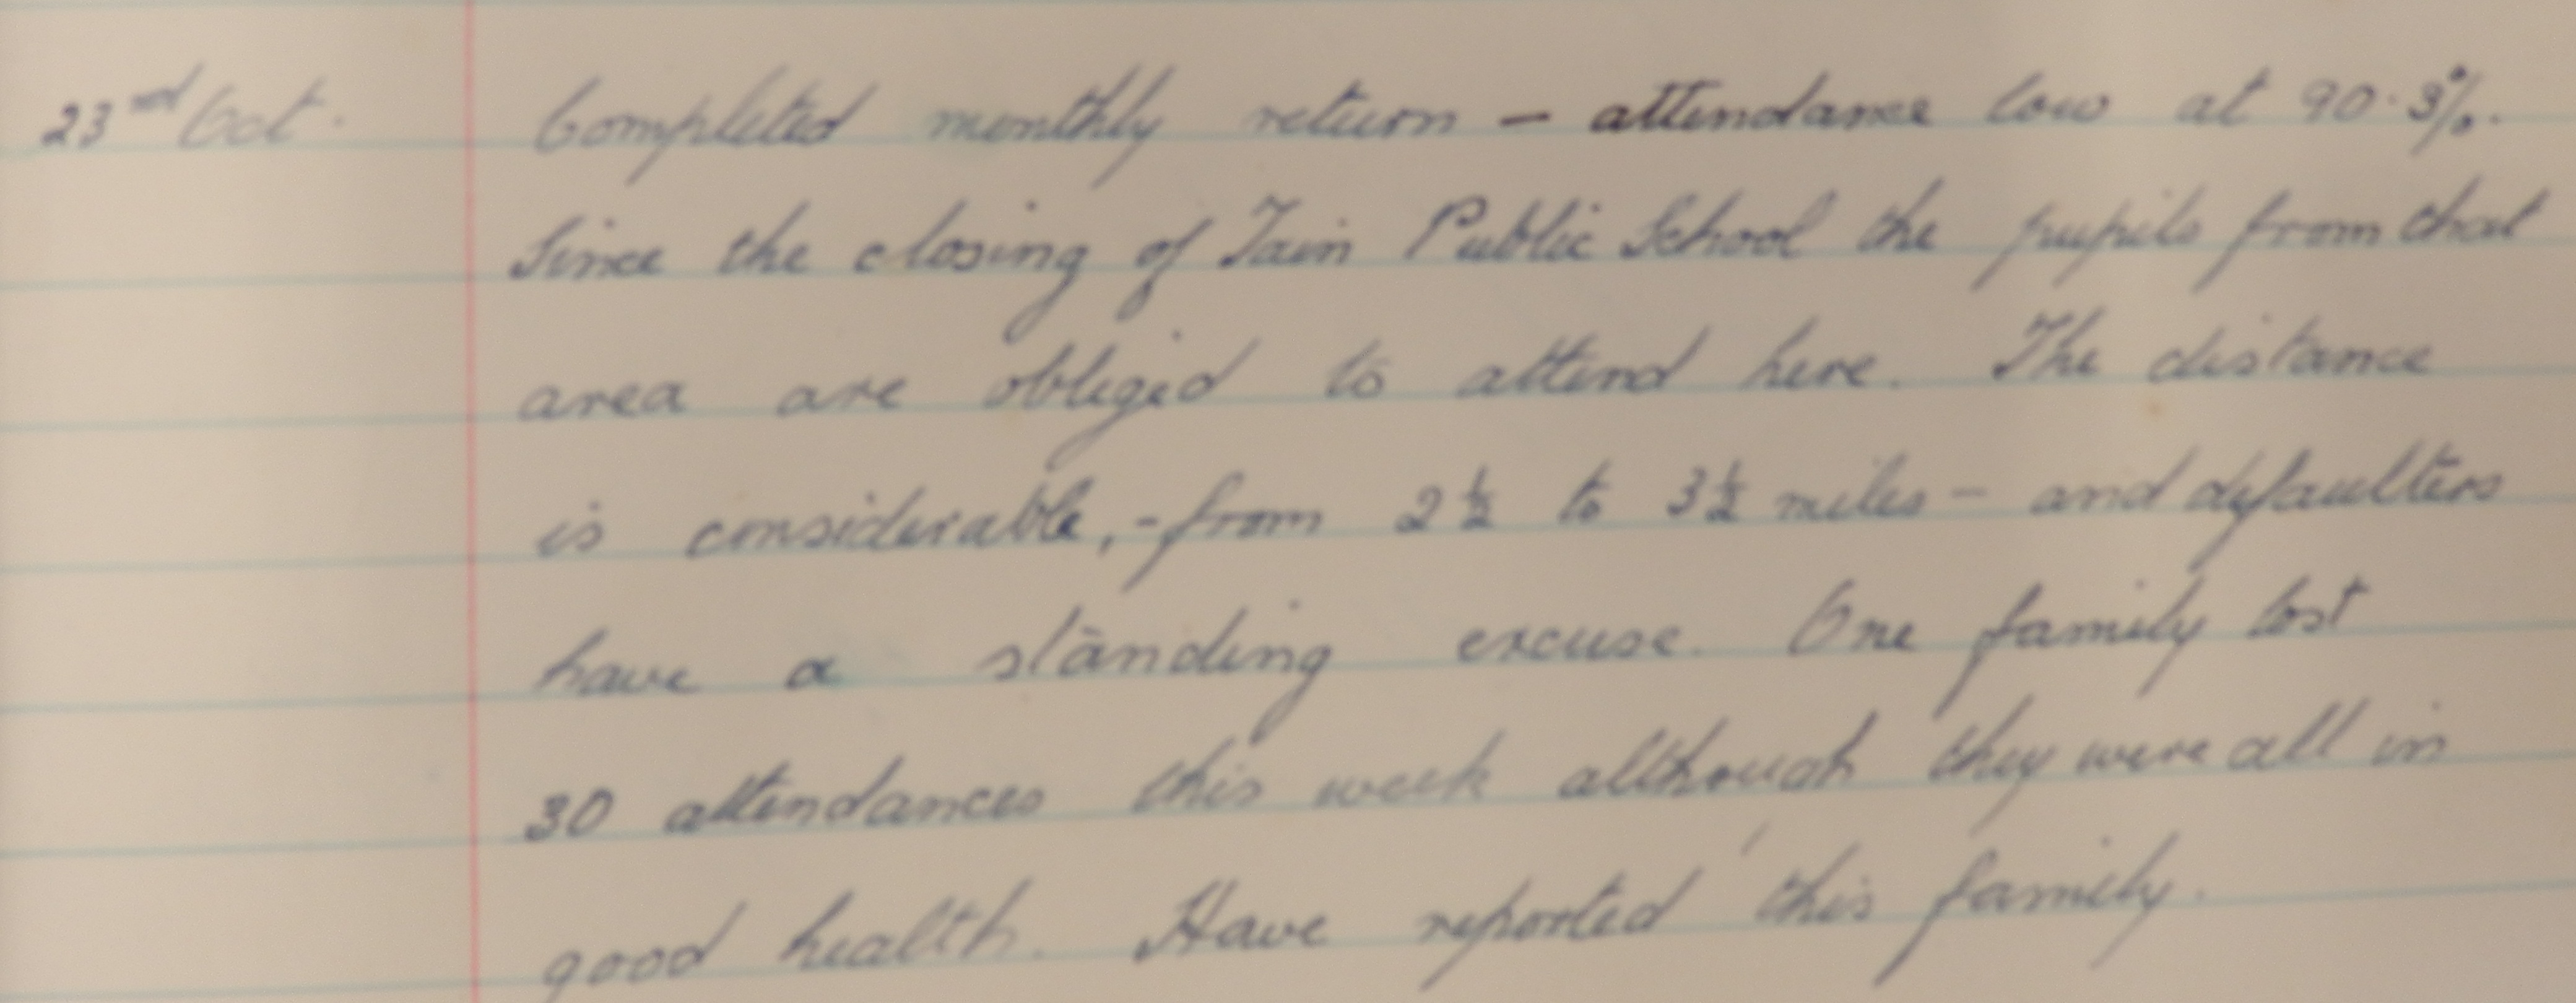 23nd Oct. Completed monthly return – attendance low at 90.3%.
Since the closing of Tain Public School the pupils from that
area are obliged to attend here. The distance
is considerable, - from 2½ to 3½ miles – and defaulters
have a standing excuse. One family lost
30 attendances this week although they were all in
good health. Have reported this family.